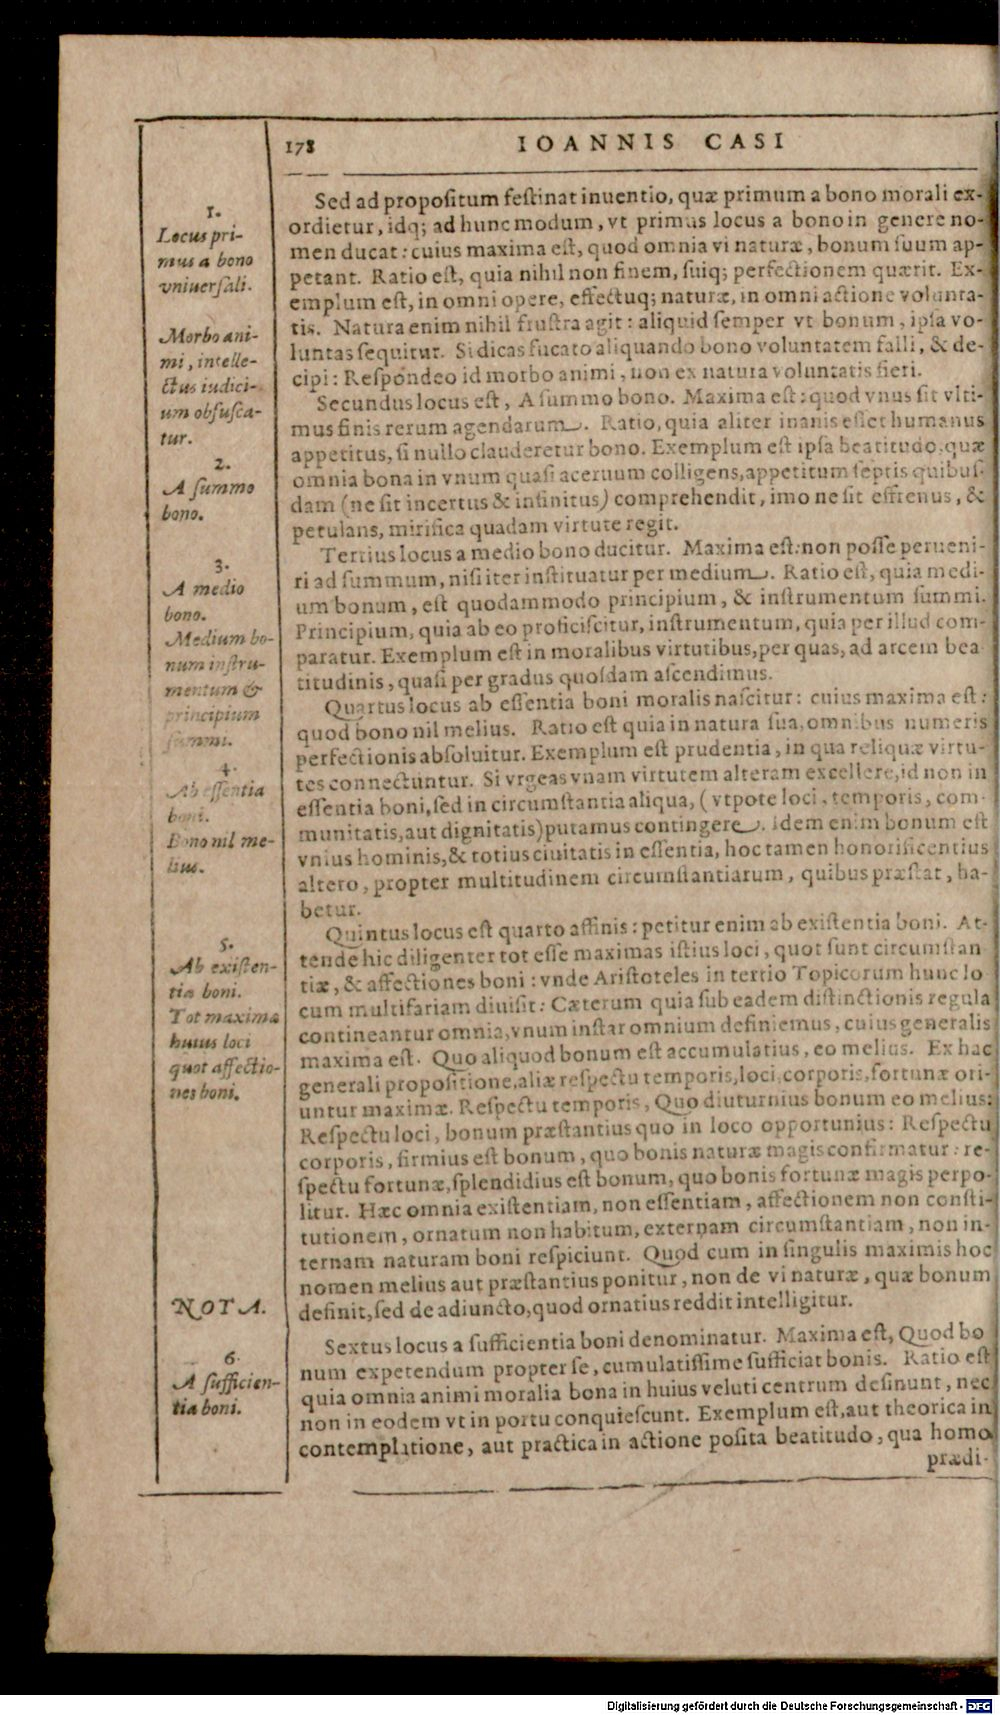 178 IOANNIS CASI
Sed ad propositum festinat inuentio, quæ primum a bono morali ex-
ordietur, idq; ad hunc modum, vt primus locus a bono in genere no-
men ducat: cuius maxima est, quod omnia vi naturæ, bonum suum ap-
petant. Ratio est, quia nihil non finem, suiq; perfectionem quærit. Ex-
emplum est, in omni opere, effectuq; naturæ, in omni actione volunta-
tis. Natura enim nihil frustra agit: aliquid semper vt bonum, ipsa vo-
luntas sequitur. Si dicas fucato aliquando bono voluntatem falli, & de-
cipi: Respondeo id morbo animi, non ex natura voluntatis fieri.
Secundus locus est, A summo bono. Maxima est: quod vnus sit vlti-
mus finis rerum agendarum. Ratio, quia aliter inanis esset humanus
appetitus, si nullo clauderetur bono. Exemplum est ipsa beatitudo, quæ
omnia bona in vnum quasi aceruum colligens, appetitum septis quibus-
dam (ne sit incertus & infinitus) comprehendit, imo ne sit effrenus, &
petulans, mirifica quadam virtute regit.
Tertius locus a medio bono ducitur. Maxima est: non posse perueni-
ri ad summum, nisi iter instituatur per medium. Ratio est, quia medi-
um bonum, est quodammodo principium, & instrumentum summi.
Principium, quia ab eo proficiscitur, instrumentum, quia per illud com-
paratur. Exemplum est in moralibus virtutibus, per quas, ad arcem bea
titudinis, quasi per gradus quosdam ascendimus.
Quartus locus ab essentia boni moralis nascitur: cuius maxima est:
quod bono nil melius. Ratio est quia in natura sua, omnibus numeris
perfectionis absoluitur. Exemplum est prudentia, in qua reliquæ virtu-
tes connectuntur. Si vrgeas vnam virtutem alteram excellere, id non in
essentia boni, sed in circumstantia aliqua, (vtpote loci, temporis, com-
munitatis, aut dignitatis) putamus contingere. idem enim bonum est
vnius hominis, & totius ciuitatis in essentia, hoc tamen honorificentius
altero, propter multitudinem circumstantiarum, quibus præstat, ha-
betur.
Quintus locus est quarto affinis: petitur enim ab existentia boni. At-
tende hic diligenter tot esse maximas istius loci, quot sunt circumstan
tiæ, & affectiones boni: vnde Aristoteles in tertio Topicorum hunc lo
cum multifariam diuisit: Cæterum quia sub eadem distinctionis regula
contineantur omnia, vnum instar omnium definiemus, cuius generalis
maxima est. Quo aliquod bonum est accumulatius, eo melius. Ex hac
generali propositione, aliæ respectu temporis, loci, corporis, fortunæ ori-
untur maximæ. Respectu temporis, Quo diuturnius bonum eo melius:
Respectu loci, bonum præstantius quo in loco opportunius: Respectu
corporis, firmius est bonum, quo bonis naturæ magis confirmatur: re-
spectu fortunæ, splendidius est bonum, quo bonis fortunæ magis perpo-
litur. Hæc omnia existentiam, non essentiam, affectionem non consti-
tutionem, ornatum non habitum, externam circumstantiam, non in-
ternam naturam boni respiciunt. Quod cum in singulis maximis hoc
nomen melius aut præstantius ponitur, non de vi naturæ, quæ bonum
definit, sed de adiuncto, quod ornatius reddit intelligitur.
Sextus locus a sufficientia boni denominatur. Maxima est, Quod bo
num expetendum propter se, cumulatissime sufficiat bonis. Ratio est
quia omnia animi moralia bona in huius veluti centrum desinunt, nec
non in eodem vt in portu conquiescunt. Exemplum est, aut theorica in
contemplatione, aut practica in actione posita beatitudo, qua homo
prædi-
1.
Locus pri-
mus a bono
vniuersali.
Morbo ani-
mi, intelle-
ctus iudici-
um obfusca-
tur.
2.
A summo
bono.
3.
A medio
bono.
Medium bo-
num instru-
mentum &
principium
summi.
4.
Ab essentia
boni.
Bono nil me-
lius.
5.
Ab existen-
tia boni.
Tot maxima
huius loci
quot affectio-
nes boni.
NOTA.
6.
A sufficien-
tia boni.
Digitalisierung gefördert durch die Deutsche Forschungsgemeinschaft - DFG